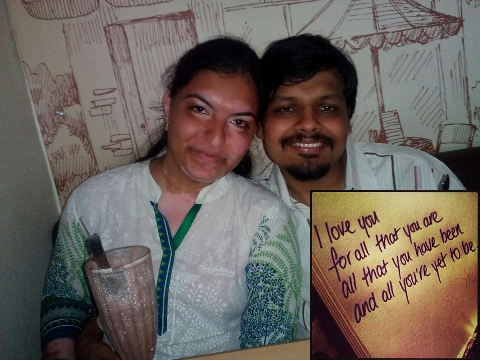 I love you
for all that you are
all that you have been
and all you're yet to be